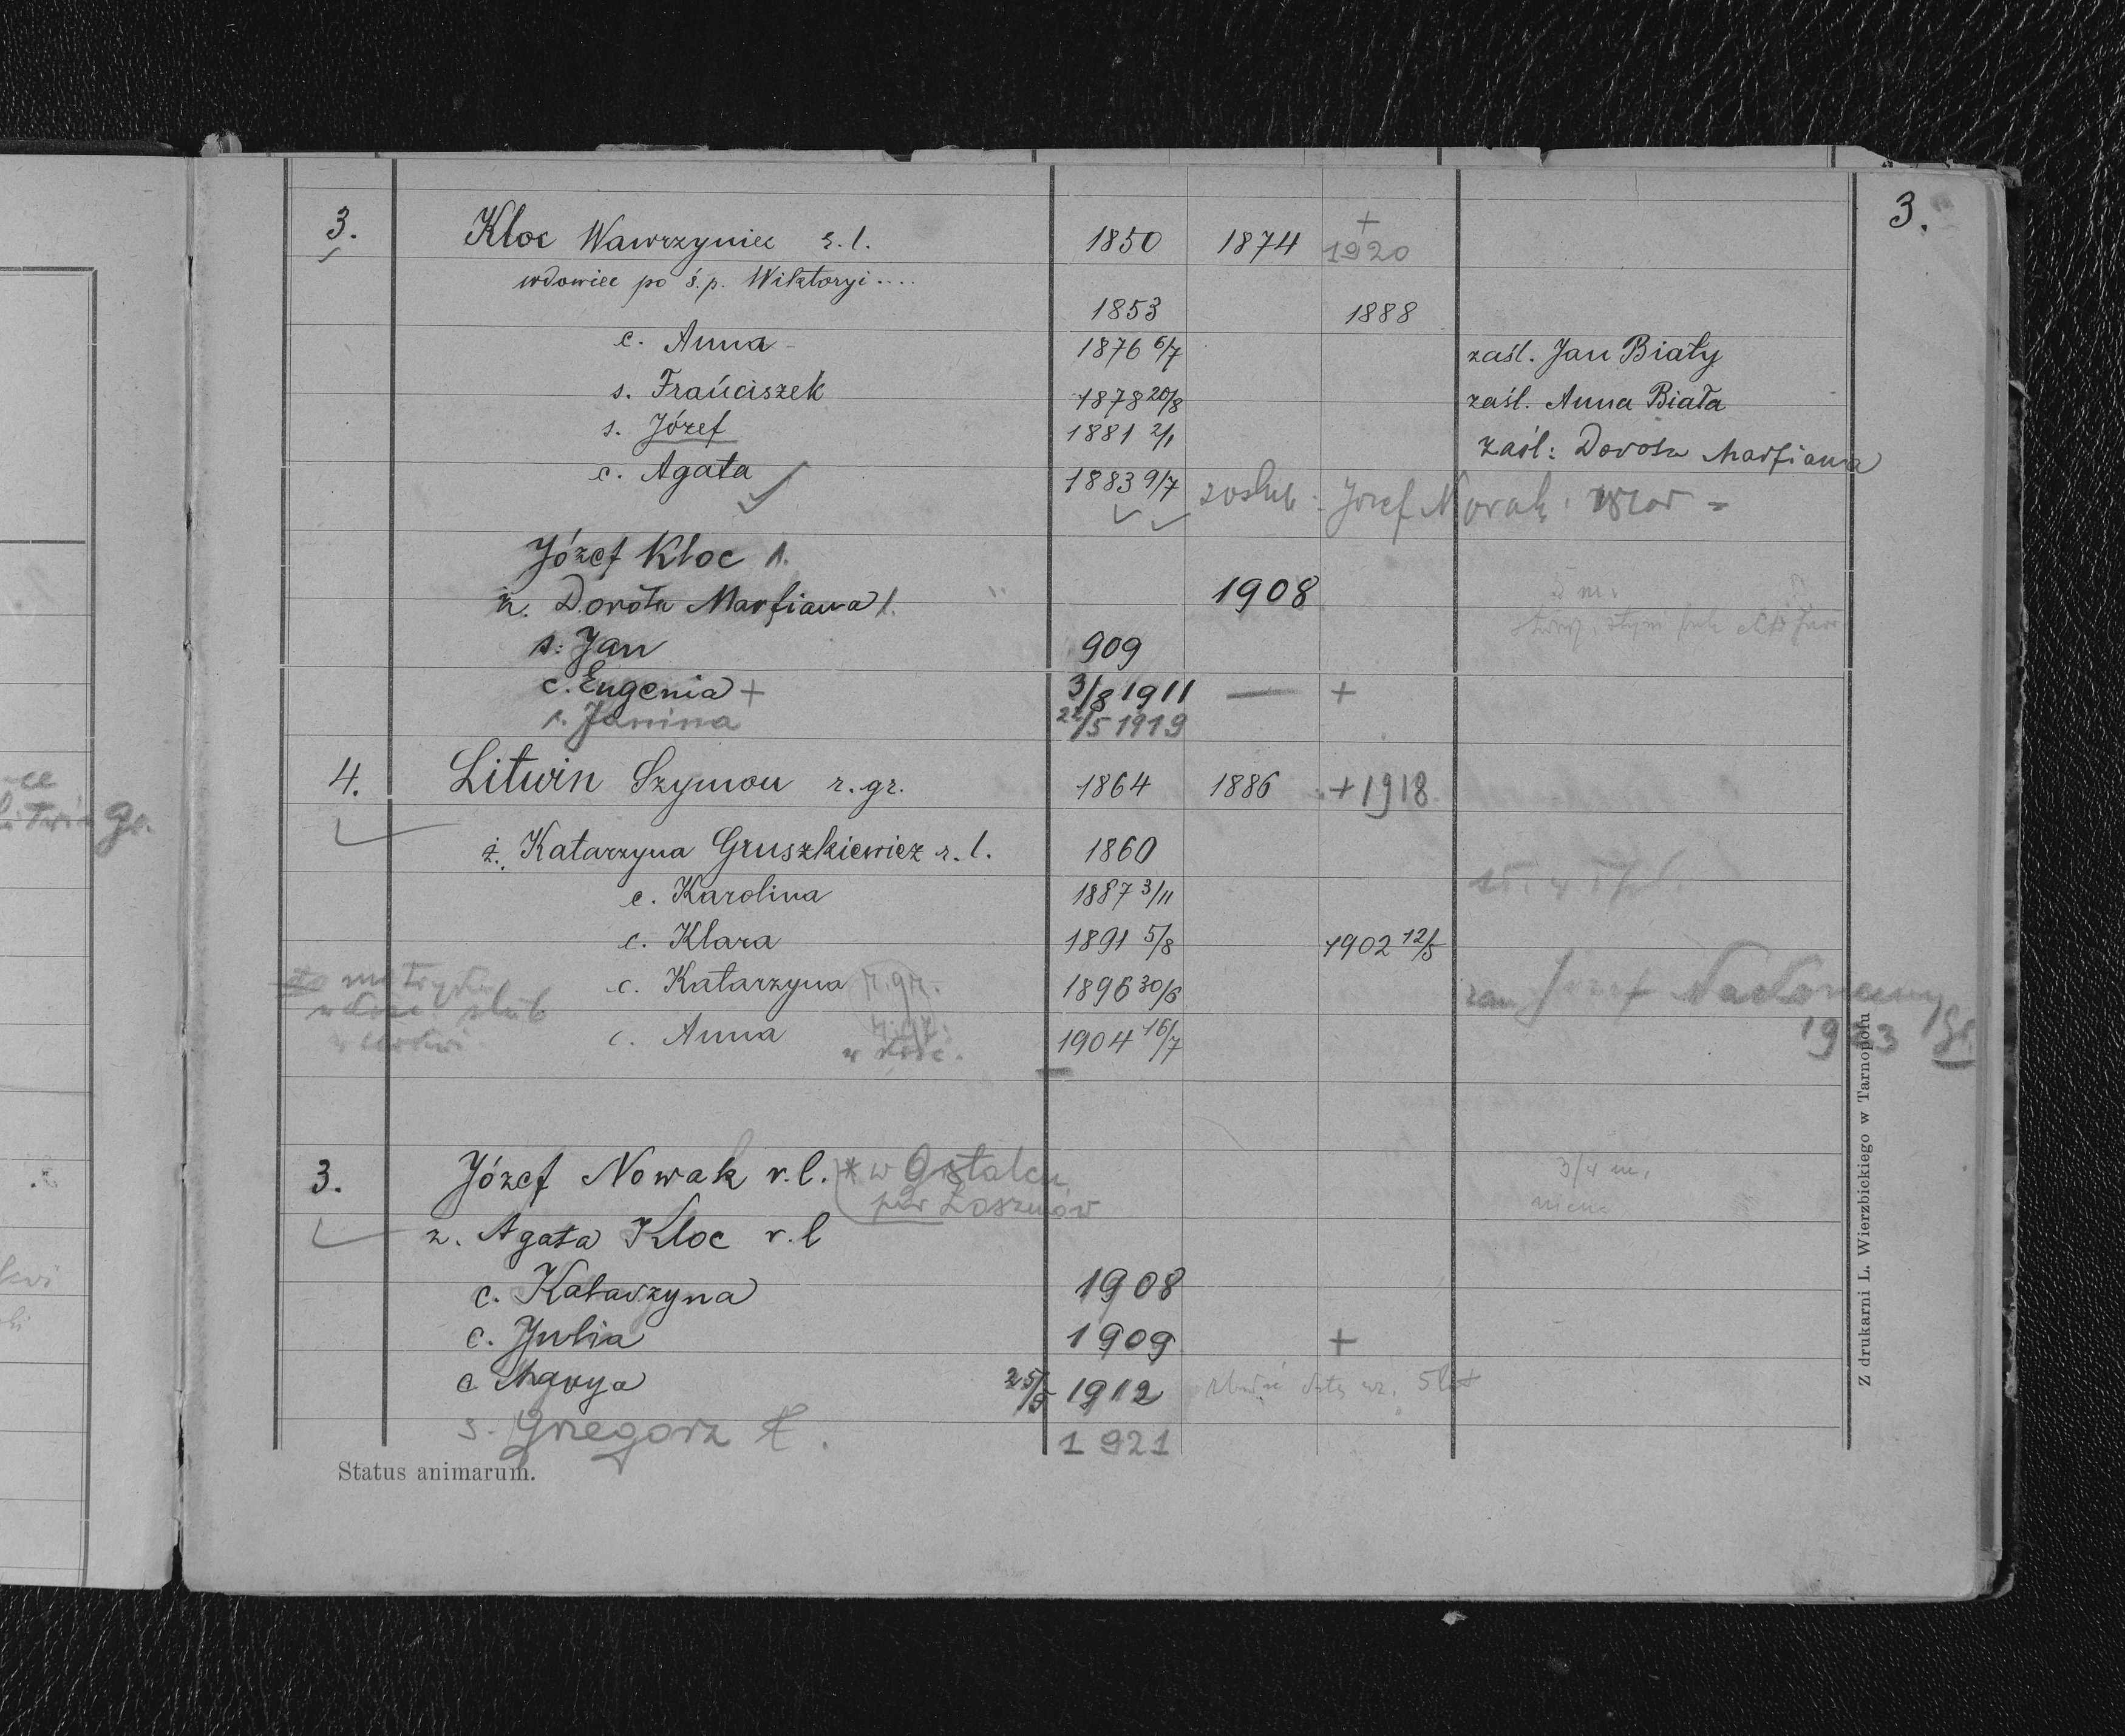 3.
3. Kloc Wawrzyniec r. l. 1850 1874 + 1920
wdowiec po ś. p. Wiktoryi ....
1853 1888
c. Anna 1876 6/7 zaśl. Jan Biały
s. Frańciszek 1878 20/8 zaśl. Anna Biała
s. Józef 1881 2/1 zaśl: Dorota Marfiana
c. Agata 1883 9/7 zoślub. Józef Nowak
Józef Kloc ł.
ż. Dorota Marfiana ł. 1908
s: Jan 909
c. Eugenia + 3/8 1911 — +
c. Janina 22/5 1919
4. Litwin Szymon r. gr. 1864 1886 +1918
ż. Katarzyna Gruszkiewicz r. l. 1860
c. Karolina 1887 3/11
c. Klara 1891 5/8 1902 12/5
c. Katarzyna r. gr. 1896 30/6 zam Józef
c. Anna r. gr. 1904 16/7 1923 gr.
w kośc.
metryka
ślub
w cerkwi
3. Józef Nowak r. l. * w 3/4 m.
par Łoszniów
ż. Agata Kloc r. l
c. Katarzyna 1908
c. Julia 1909 +
c Marya 25/5 1912 5 lat
s. Grzegorz ł. 1921
Status animarum.
Z drukarni L. Wierzbickiego w Tarnopolu